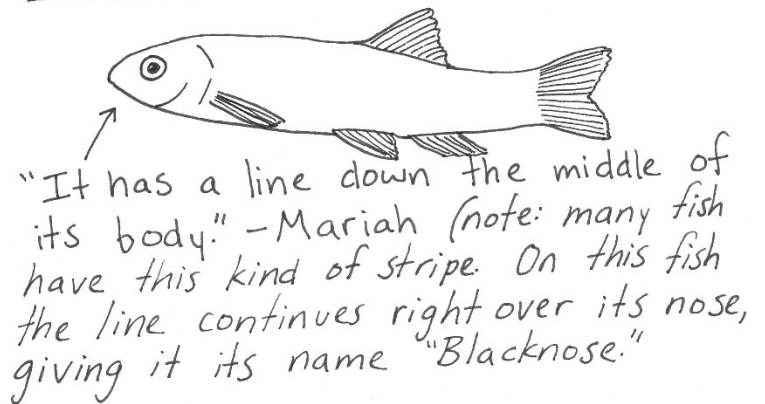 "It has a line down the middle of
its body." -Mariah (note: many fish
have this kind of stripe. On this fish
the line continues right over its nose,
giving it its name "Blacknose."